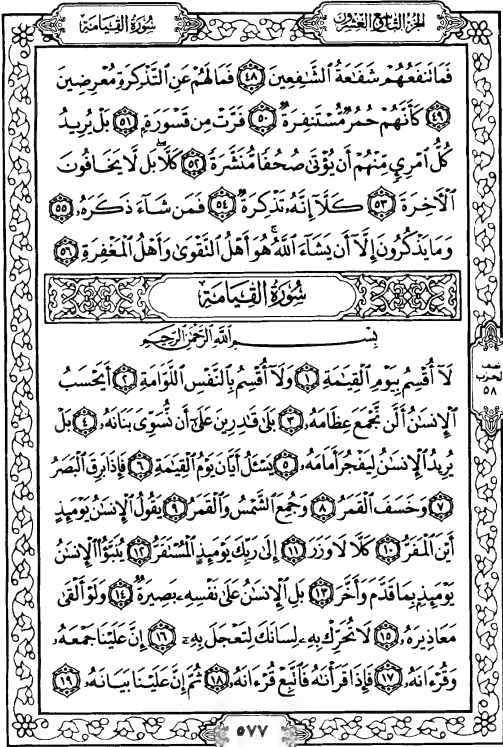 الجزء التاسع والعشرون
سُورَةُ القِيَامَة
فَمَا تَنفَعُهُمْ شَفَٰعَةُ ٱلشَّٰفِعِينَ ٤٨ فَمَا لَهُمْ عَنِ ٱلتَّذْكِرَةِ مُعْرِضِينَ
٤٩ كَأَنَّهُمْ حُمُرٌ مُّسْتَنفِرَةٌ ٥٠ فَرَّتْ مِن قَسْوَرَةٍۭ ٥١ بَلْ يُرِيدُ
كُلُّ ٱمْرِئٍ مِّنْهُمْ أَن يُؤْتَىٰ صُحُفًا مُّنَشَّرَةً ٥٢ كَلَّا بَل لَّا يَخَافُونَ
ٱلْءَاخِرَةَ ٥٣ كَلَّآ إِنَّهُۥ تَذْكِرَةٌ ٥٤ فَمَن شَآءَ ذَكَرَهُۥ ٥٥
وَمَا يَذْكُرُونَ إِلَّآ أَن يَشَآءَ ٱللَّهُ هُوَ أَهْلُ ٱلتَّقْوَىٰ وَأَهْلُ ٱلْمَغْفِرَةِ ٥٦
سُورَةُ القِيَامَةِ
بِسْمِ ٱللَّهِ ٱلرَّحْمَٰنِ ٱلرَّحِيمِ
لَآ أُقْسِمُ بِيَوْمِ ٱلْقِيَٰمَةِ ١ وَلَآ أُقْسِمُ بِٱلنَّفْسِ ٱللَّوَّامَةِ ٢ أَيَحْسَبُ
ٱلْإِنسَٰنُ أَلَّن نَّجْمَعَ عِظَامَهُۥ ٣ بَلَىٰ قَٰدِرِينَ عَلَىٰٓ أَن نُّسَوِّىَ بَنَانَهُۥ ٤ بَلْ
يُرِيدُ ٱلْإِنسَٰنُ لِيَفْجُرَ أَمَامَهُۥ ٥ يَسْـَٔلُ أَيَّانَ يَوْمُ ٱلْقِيَٰمَةِ ٦ فَإِذَا بَرِقَ ٱلْبَصَرُ
٧ وَخَسَفَ ٱلْقَمَرُ ٨ وَجُمِعَ ٱلشَّمْسُ وَٱلْقَمَرُ ٩ يَقُولُ ٱلْإِنسَٰنُ يَوْمَئِذٍ
أَيْنَ ٱلْمَفَرُّ ١٠ كَلَّا لَا وَزَرَ ١١ إِلَىٰ رَبِّكَ يَوْمَئِذٍ ٱلْمُسْتَقَرُّ ١٢ يُنَبَّؤُا۟ ٱلْإِنسَٰنُ
يَوْمَئِذٍۭ بِمَا قَدَّمَ وَأَخَّرَ ١٣ بَلِ ٱلْإِنسَٰنُ عَلَىٰ نَفْسِهِۦ بَصِيرَةٌ ١٤ وَلَوْ أَلْقَىٰ
مَعَاذِيرَهُۥ ١٥ لَا تُحَرِّكْ بِهِۦ لِسَانَكَ لِتَعْجَلَ بِهِۦٓ ١٦ إِنَّ عَلَيْنَا جَمْعَهُۥ
وَقُرْءَانَهُۥ ١٧ فَإِذَا قَرَأْنَٰهُ فَٱتَّبِعْ قُرْءَانَهُۥ ١٨ ثُمَّ إِنَّ عَلَيْنَا بَيَانَهُۥ ١٩
نصف
الحزب
٥٨
٥٧٧